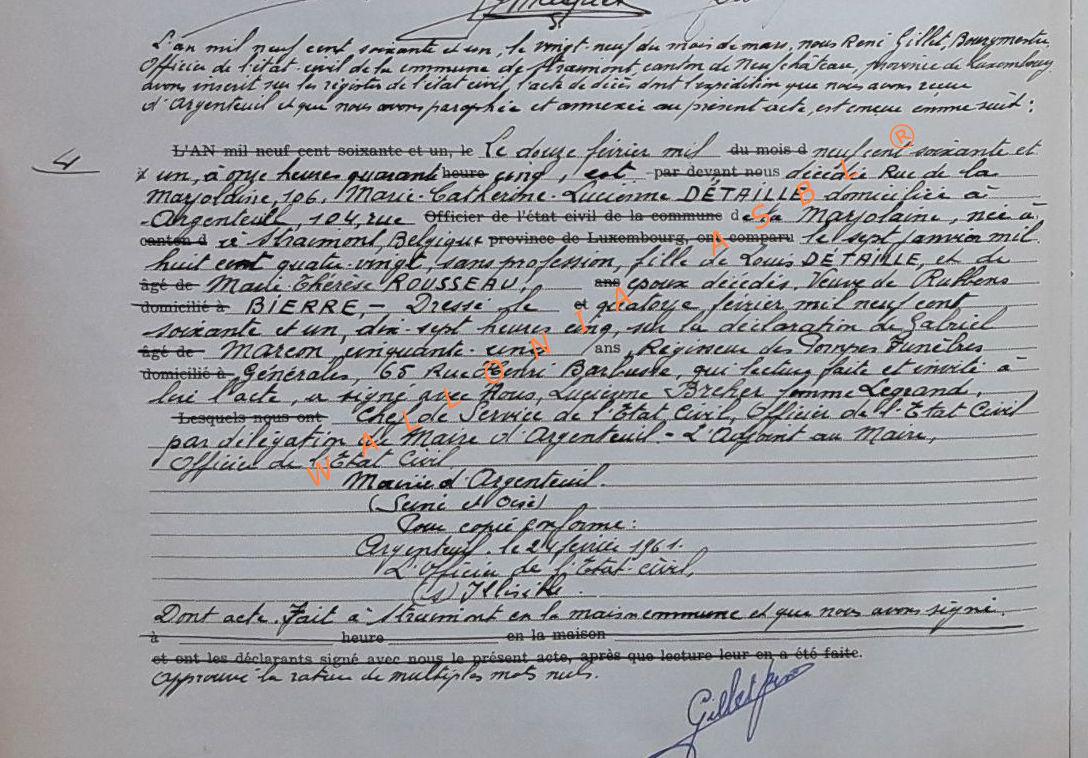 L'an mil neuf cent soixante et un, le vingt-neuf du mois de mars, nous René Gillet, Bourgmestre,
Officier de l'état-civil de la commune de Straimont, canton de Neufchâteau, province de Luxembourg
avons inscrit sur les registres de l'état civil, l'acte de décès dont l'expédition que nous avons reçue
d'Argenteuil et que nous avons paraphée et annexée au présent acte, est conçue comme suit :
4
L'AN mil neuf cent soixante et un, le Le douze février mil du mois d neuf cent soixante et
un, à onze heures quarante heure cinq, est par devant nous décédée Rue de la
Marjolaine, 106, Marie-Catherine-Lucienne DÉTAILLE domiciliée à
Argenteuil, 104, rue Officier de l'état civil de la commune de la Marjolaine, née à
canton d Straimont, Belgique province de Luxembourg, ont comparu le sept janvier mil
huit cent quatre-vingt, sans profession, fille de Louis DETAILLE, et de
âgé de Marie-Thérèse ROUSSEAU, ans époux décédés, Veuve de Ruthens
domicilié à BIERRE, - Dressé le et quatorze février mil neuf cent
soixante et un, dix-sept heures cinq, sur la déclaration de Gabriel
âgé de Marcon, cinquante-cinq ans, Régisseur des Pompes Funèbres
domicilié à Générales, 165 Rue Henri Barbusse, qui lecture faite et invité à
lire l'acte, a signé avec Nous, Lucienne Breher femme Legrand,
Lesquels nous ont Chef de Service de l'Etat Civil, Officier de l'Etat Civil
par délégation du Maire d'Argenteuil - L'Adjoint au Maire,
Officier de l'Etat Civil
Mairie d'Argenteuil.
(Seine et Oise)
Pour copie conforme :
Argenteuil. le 24 février 1961.
L'Officier de l'Etat-civil,
(s) Illisible.
Dont acte. Fait à Straimont en la maison commune et que nous avons signé.
à heure en la maison
et ont les déclarants signé avec nous le présent acte, après que lecture leur en a été faite.
Approuvé la rature de multiples mots nuls.
Gillet
WALLONIA ASBL ®